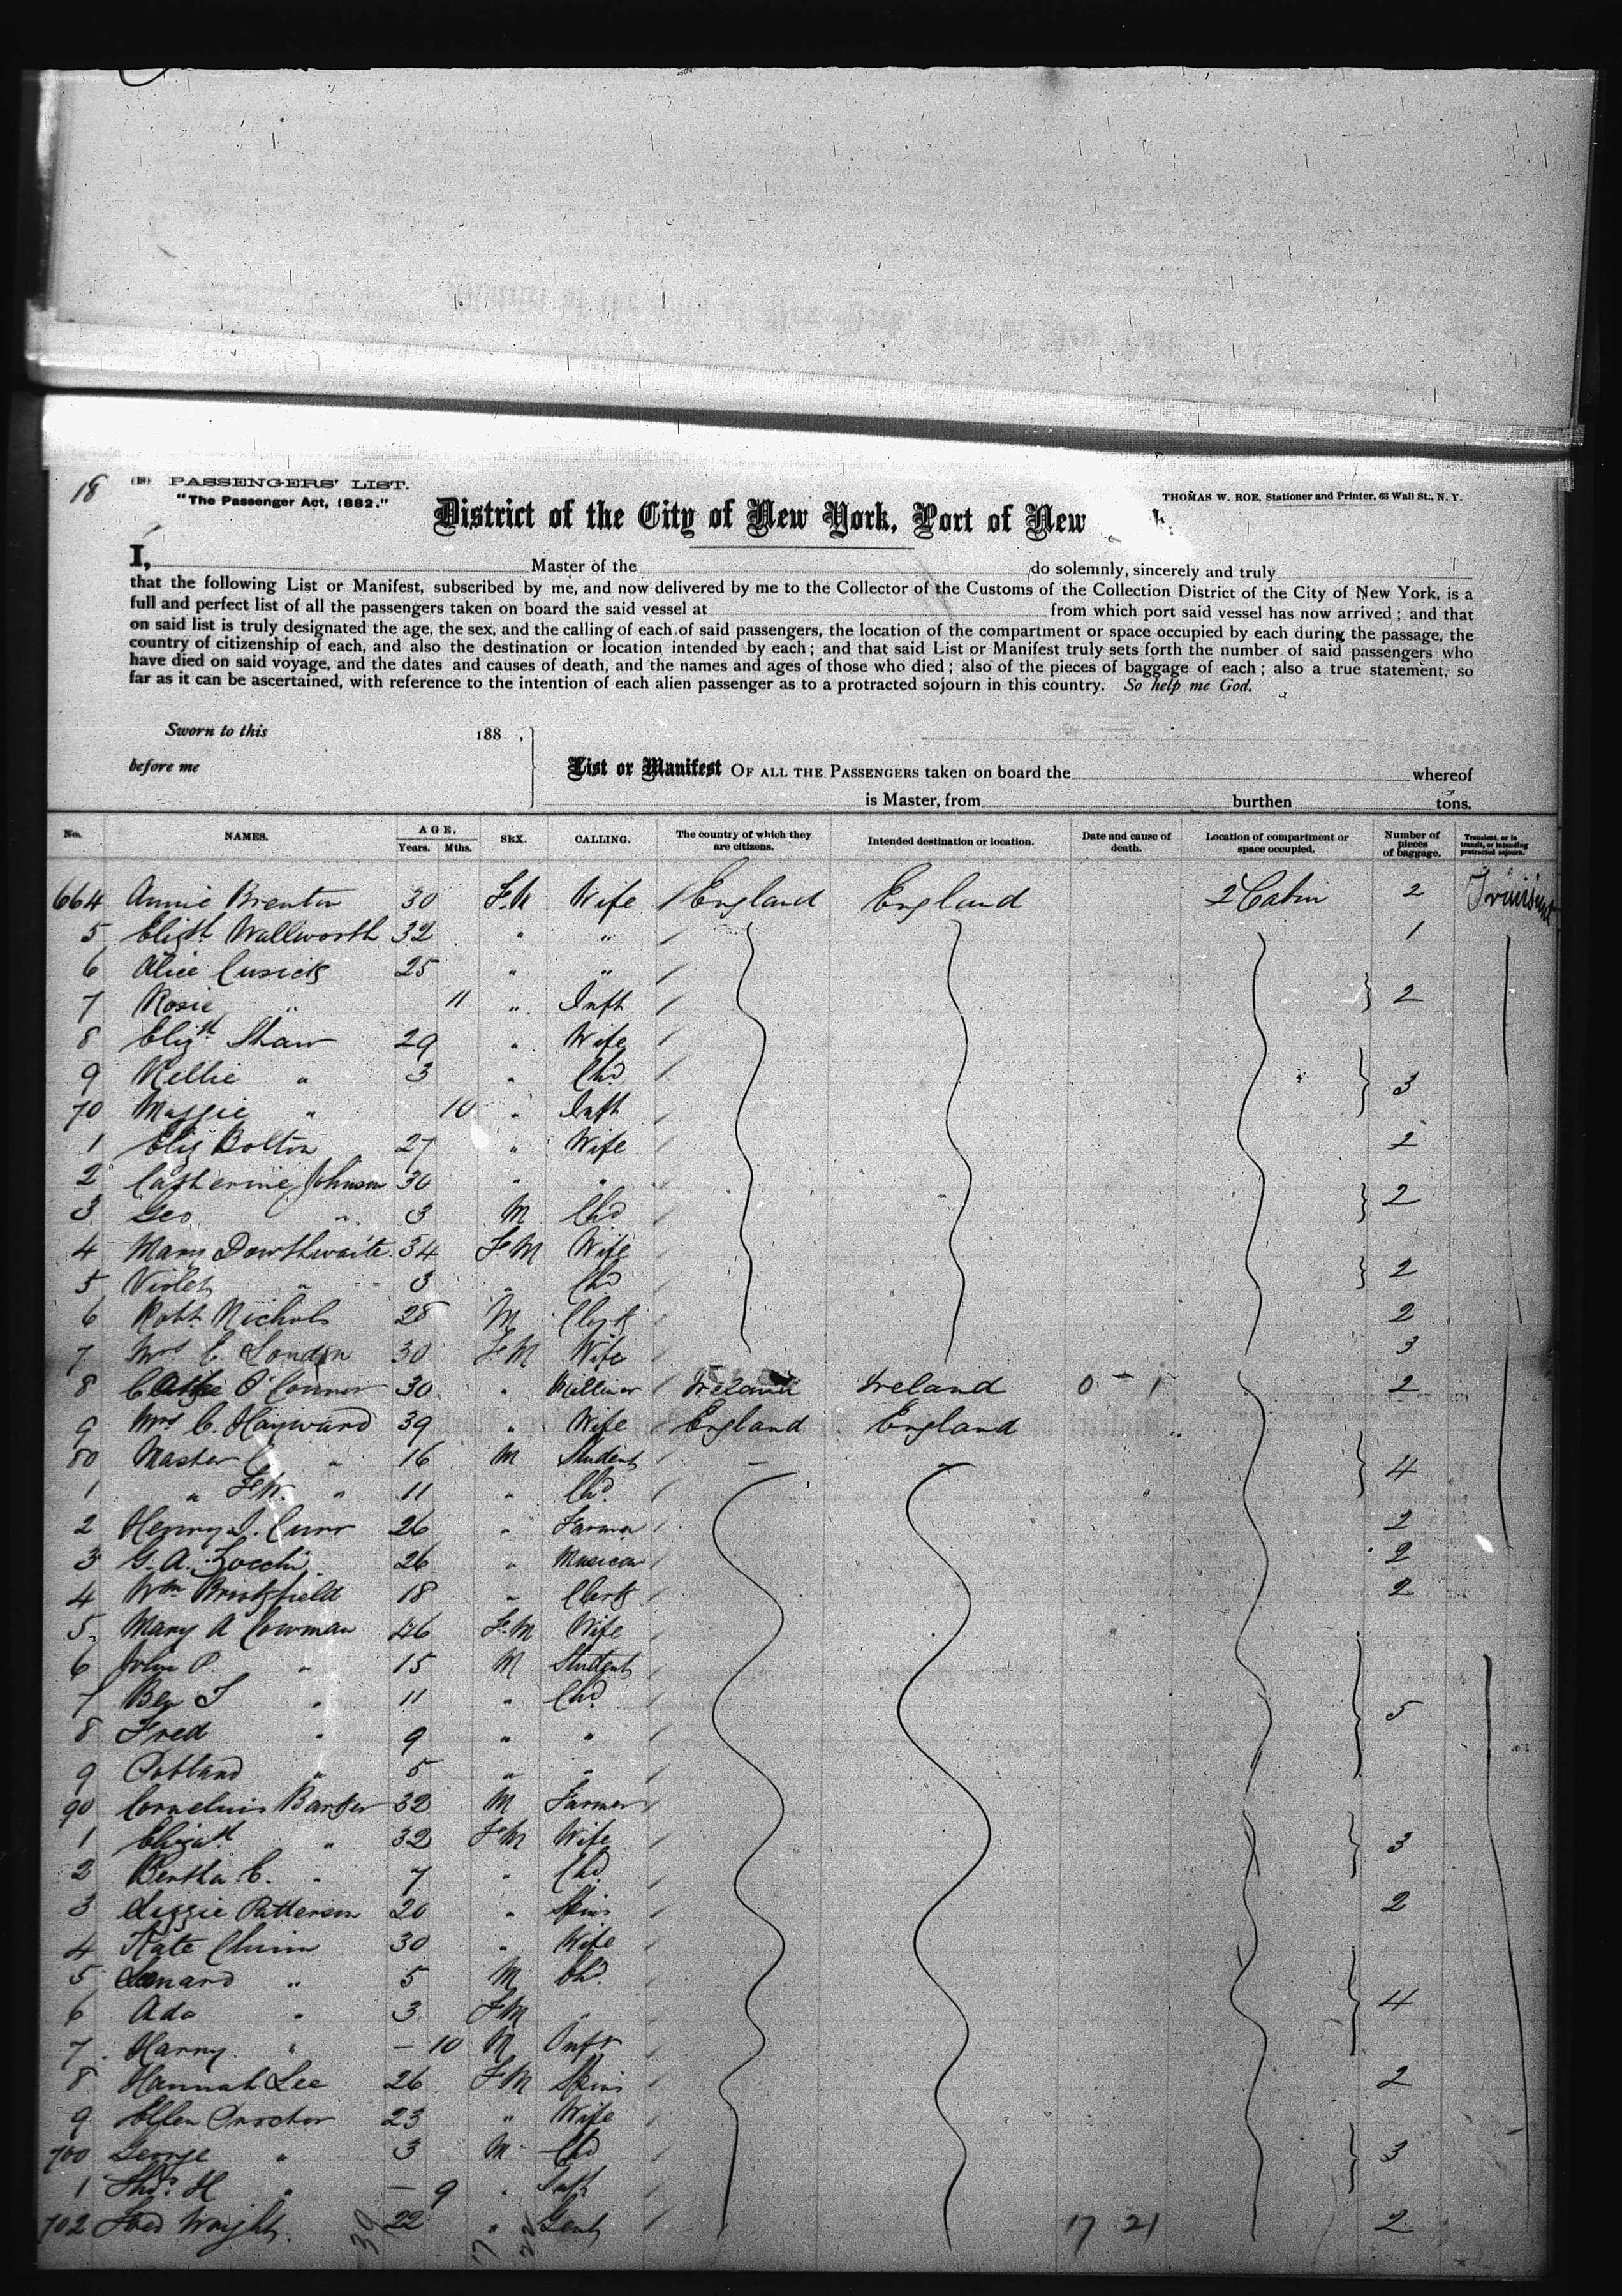 18
(18) PASSENGERS' LIST.
"The Passenger Act, 1882."
THOMAS W. ROE, Stationer and Printer, 63 Wall St., N. Y.
District of the City of New York, Port of New k.
I, Master of the do solemnly, sincerely and truly
that the following List or Manifest, subscribed by me, and now delivered by me to the Collector of the Customs of the Collection District of the City of New York, is a
full and perfect list of all the passengers taken on board the said vessel at from which port said vessel has now arrived; and that
on said list is truly designated the age, the sex, and the calling of each of said passengers, the location of the compartment or space occupied by each during the passage, the
country of citizenship of each, and also the destination or location intended by each; and that said List or Manifest truly sets forth the number of said passengers who
have died on said voyage, and the dates and causes of death, and the names and ages of those who died; also of the pieces of baggage of each; also a true statement, so
far as it can be ascertained, with reference to the intention of each alien passenger as to a protracted sojourn in this country. So help me God.
Sworn to this 188 ,
before me
List or Manifest OF ALL THE PASSENGERS taken on board the whereof
is Master, from burthen tons.
No. NAMES. AGE. Years. Mths. SEX. CALLING. The country of which they are citizens. Intended destination or location. Date and cause of death. Location of compartment or space occupied. Number of pieces of baggage. Transient, or in transit, or intending protracted sojourn.
664 Annie Brenton 30 F.M Wife England England 2 Cabin 2 Transient
5 Elizth Wallworth 32 " " 1
6 Alice Cusick 25 " "
7 Rosie " 11 " Inft 2
8 Elizth Shaw 29 " Wife
9 Nellie " 3 " Chd
70 Maggie " 10 " Inft 3
1 Eliz Bolton 27 " Wife 2
2 Catherine Johnson 30 " "
3 Geo " 3 M Chd 2
4 Mary Dowthwaite 34 F.M Wife
5 Violet " 3 " Chd 2
6 Robt Nichols 28 M Clerk 2
7 Mrs C. London 30 F.M Wife 3
8 O'Connor 30 " Milliner Ireland Ireland 0 - 1 2
9 Mrs C. Hayward 39 " Wife England England
80 Master C " 16 M Student 4
1 " F.W. " 11 " Chd.
2 Henry J. Curr 26 " Farmer 2
3 G. A. Zocchi 26 " Musician 2
4 Wm Brookfield 18 " Clerk 2
5 Mary A Cowman 46 F.M Wife
6 John P. " 15 M Student
7 Ben J " 11 " Chd
8 Fred " 9 " " 5
9 " 5 " "
90 Cornelius Barker 32 M Farmer
1 Elizath " 32 F.M Wife 3
2 Bertha E. " 7 " Chd
3 Lizzie Patterson 20 " Spins 2
4 Kate Chinn 30 " Wife
5 Leonard " 5 M Chd.
6 Ada " 3 F.M " 4
7 Harry " - 10 M Inft
8 Hannah Lee 26 F.M Spins 2
9 Ellen Procter 23 " Wife
700 George " 3 M Chd 3
1 Thos. H " - 9 " Inft
702 Fred Wright 22 " Gent 17 21 2
39 17 22